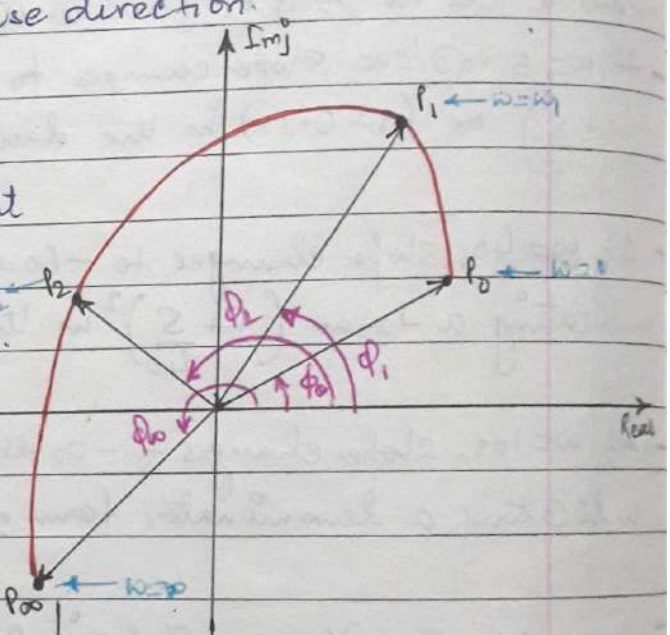 use direction.
Imj
P1 ← ω=ω1
t
P2 ←
P0 ← ω=0
ϕ2
ϕ1
ϕ0
ϕ∞
Real
P∞ ← ω=∞